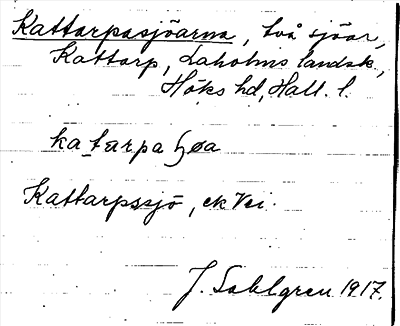 Kattarpasjöarna, två sjöar,
Kattarp, Laholms landsk.,
Höks hd, Hall. l.
Kattarpssjö, ek Vei.
J. Sahlgren 1917.